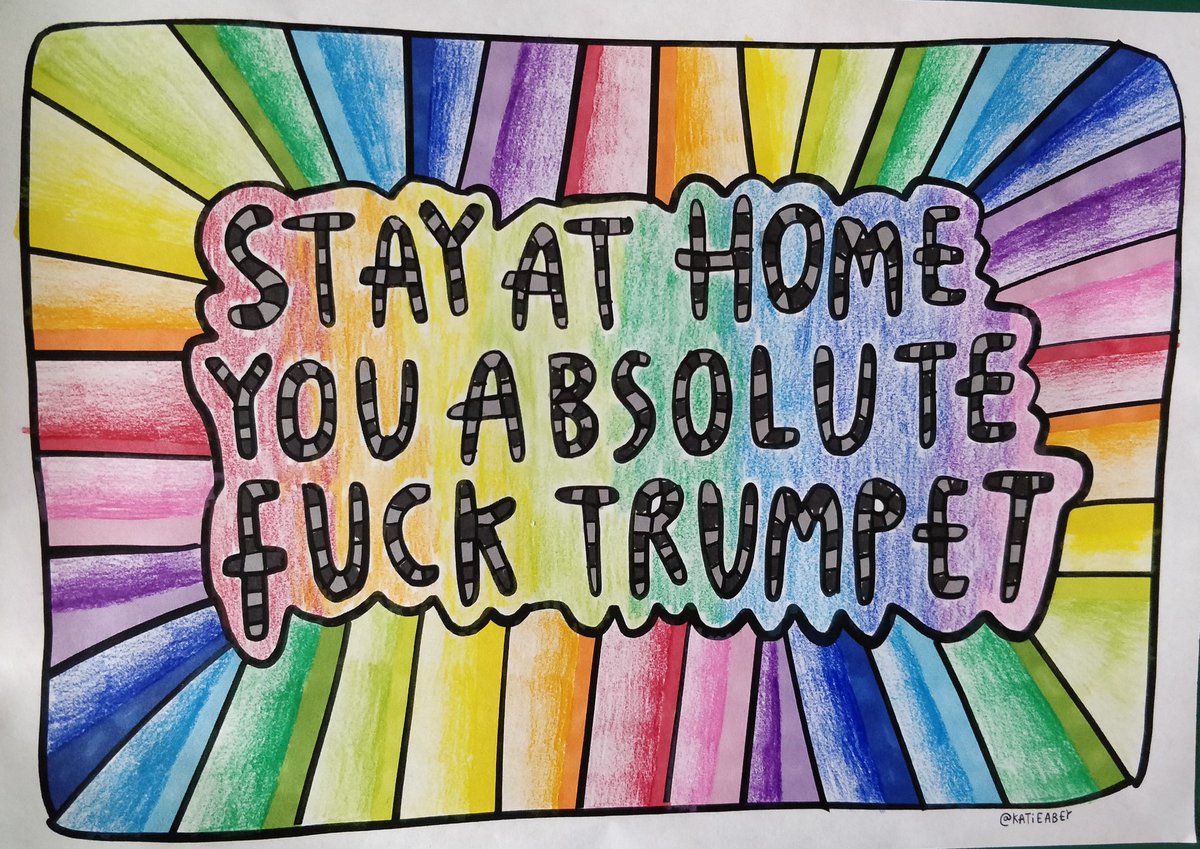 STAY AT HOME
YOU ABSOLUTE
FUCK TRUMPET
@KATIEABEY